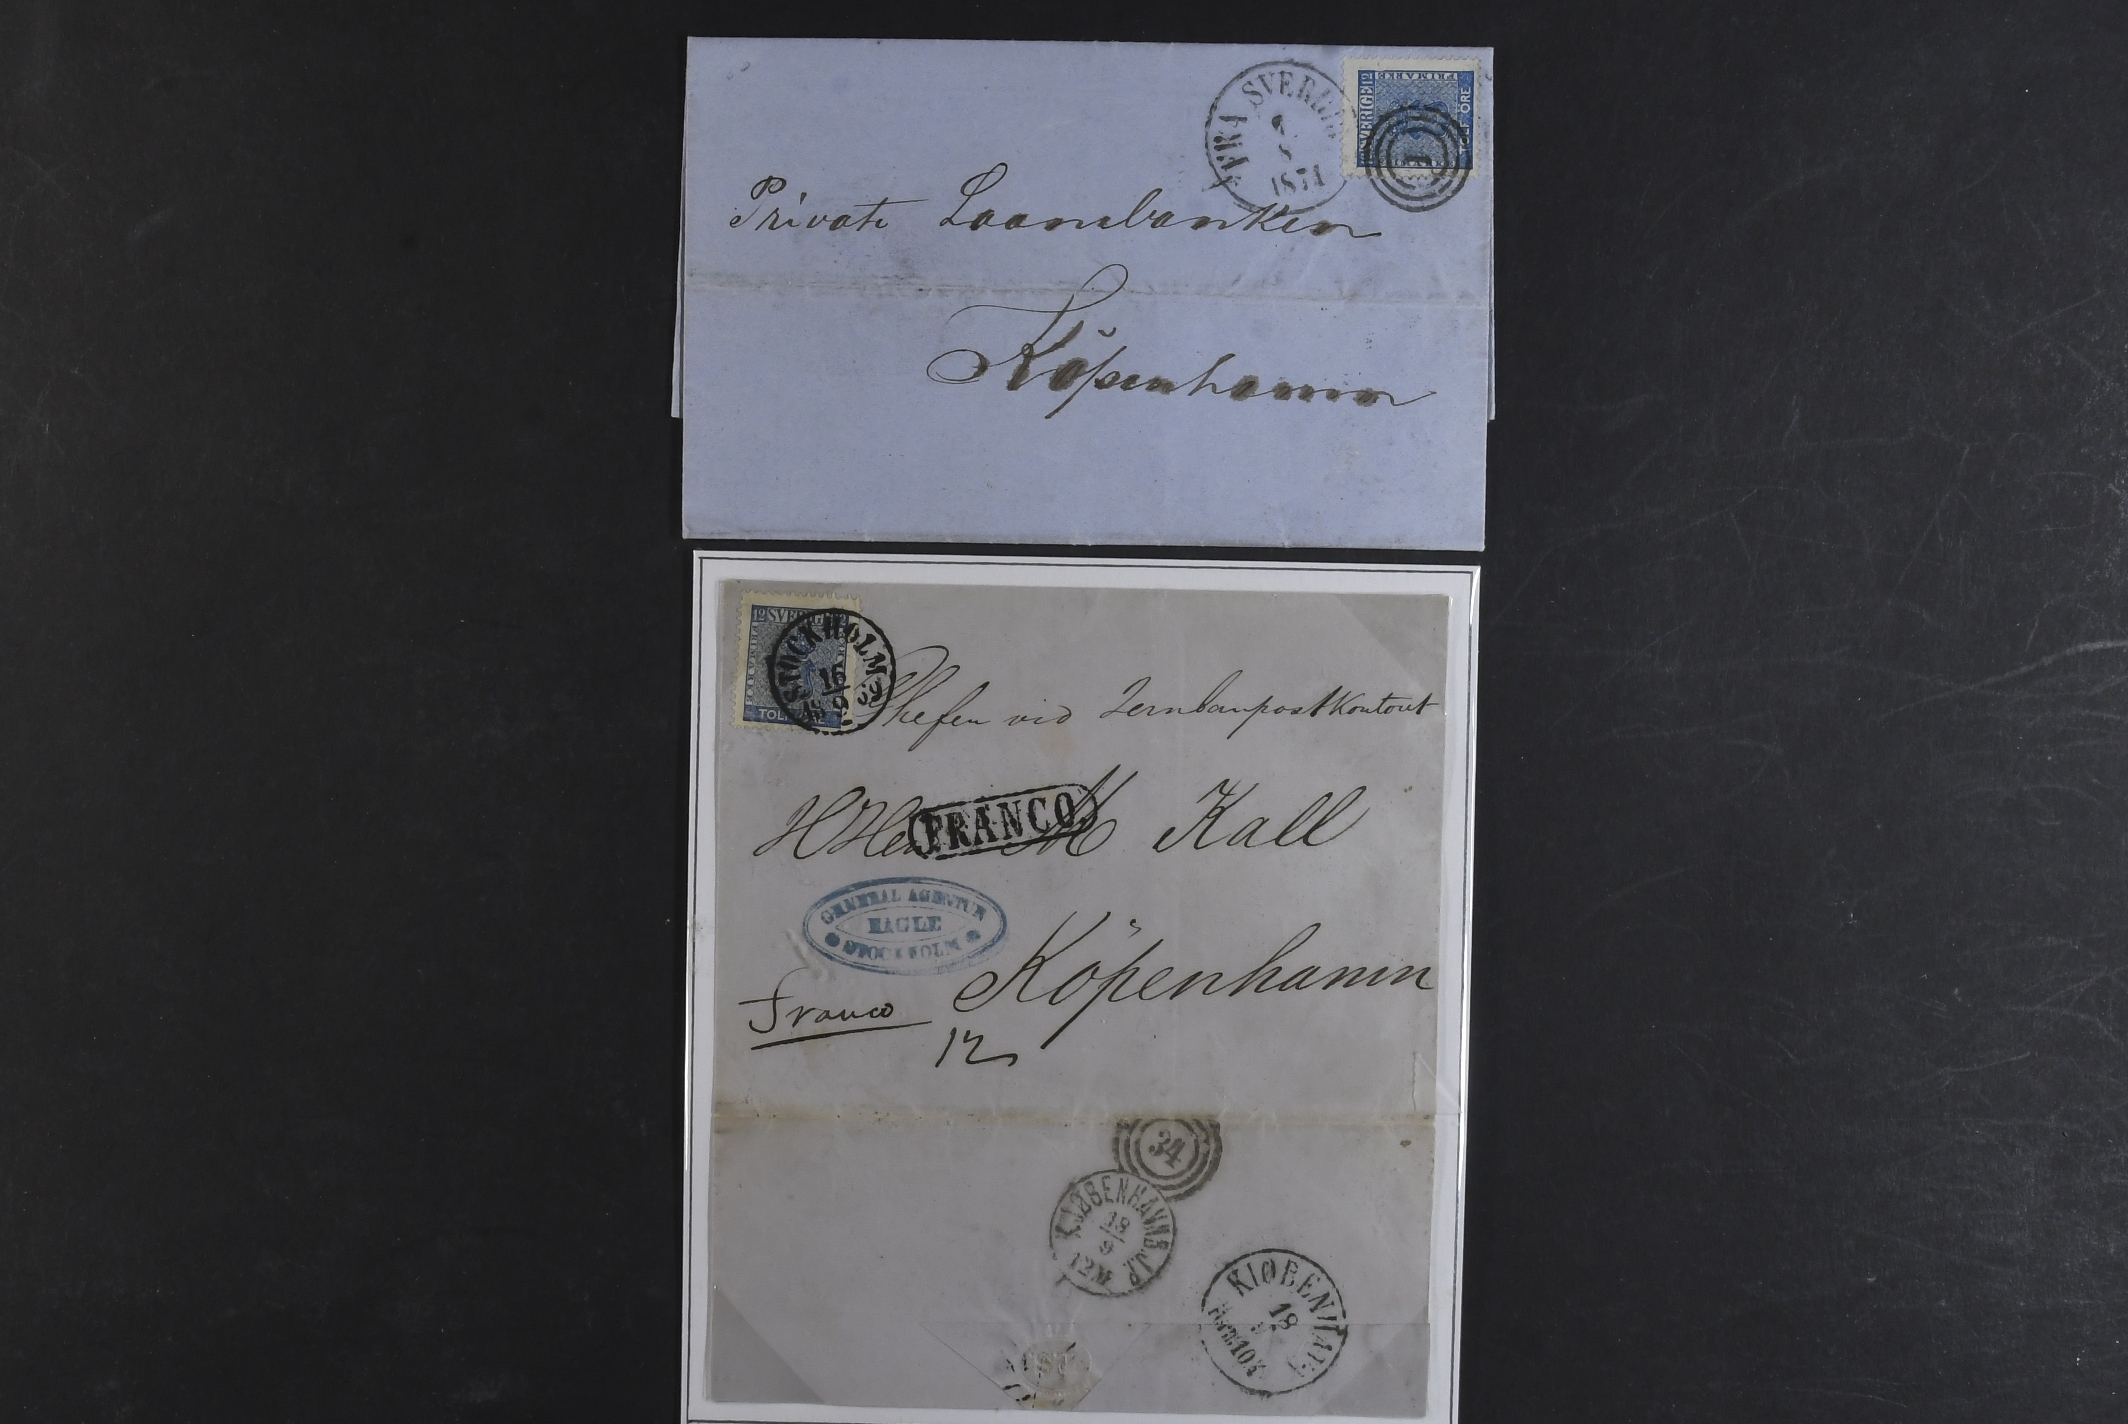 FRA SVERIG
1871
SVERIGE
12
FRIMARKE
TOLF ÖRE
1
Private Laanebanken
Köpenhamn
12 SVERIGE 12
TOLF
STOCKHOLM
16
9
1869
Chefen vid Jernbanpostkontoret
H Herr M Kall
FRANCO
GENERAL AGENTUR
EAGLE
STOCKHOLM
Köpenhamn
Franco
12
34
KJØBENHAVNS J.P.
18
9
12 M
KIØBENHAVN
18